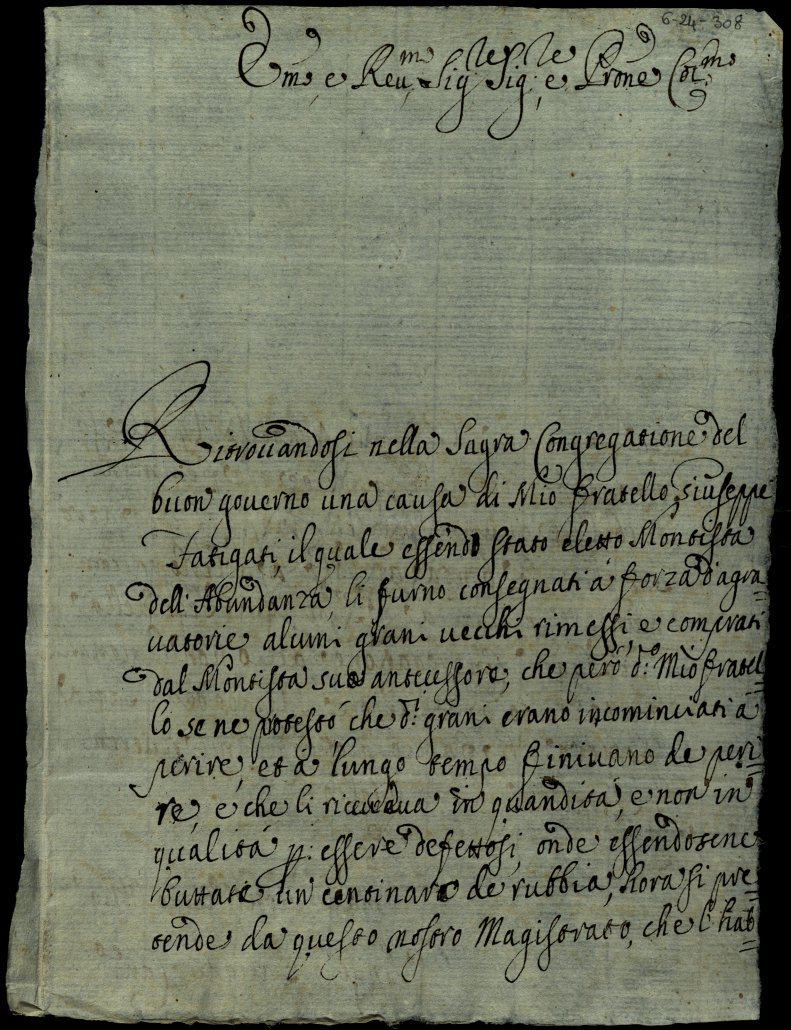 6-24-308
Em.o e Reu.mo Sig.re Sig.re e Prone Col.mo
Ritrouandosi nella Sagra Congregatione del
buon gouerno una causa di Mio fratello Giuseppe
Fatigati, il quale essendo stato eletto Montista
dell'Abundanza, li furno consegnati á forza d'agra=
uatorie alcuni grani uecchi rimessi, e comprati
dal Montista suo antecessore, che peró d.o Mio fratel=
lo se ne potestó che d.i grani erano incominciati a
perire, et a lungo tempo finiuano de peri=
re, e che li riceueua in quandità, e non in
qualità p: essere defettosi, onde essendosene
buttate un centinaro de rubbia, hora si pre=
tende da questo nostro Magistrato, che l'hab=